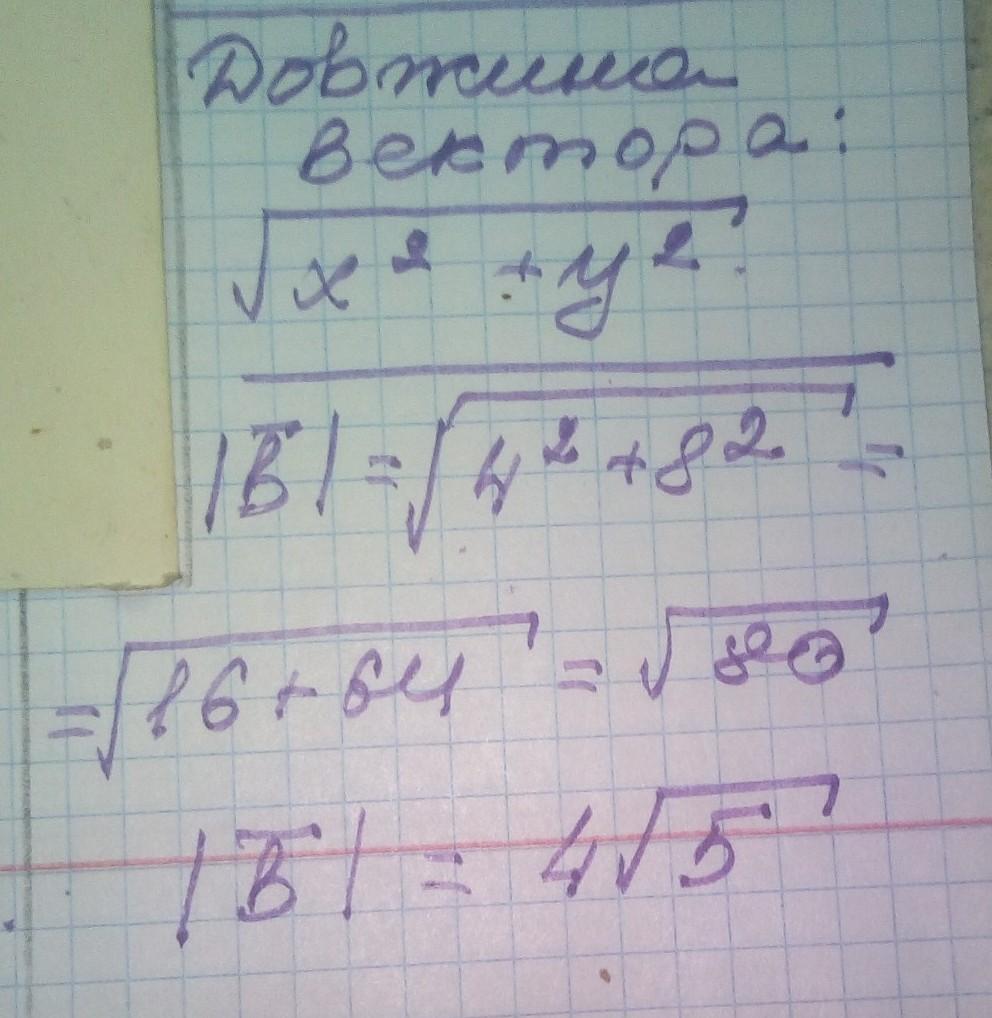 Довжина
вектора:
√x² + y²
|B̅| = √4² + 8² =
= √16 + 64 = √80
|B̅| = 4√5